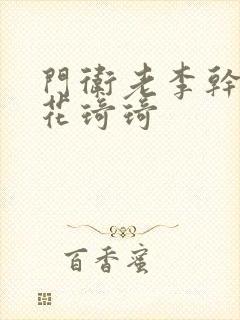 門衛老李幹
花琦琦
百香蜜